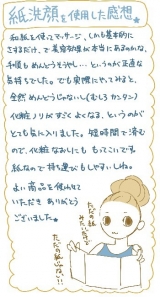 紙洗顔を使用した感想★
和紙を使ってマッサージ、しかも基本的に
さするだけ、で美容効果が本当にあるのかな、
手順もめんどうそうや… というのが正直な
気持ちでした。でも実際にやってみると、
全然めんどうじゃないし(むしろカンタン)
化粧ノリがすごくよくなる、というのが
とても気に入りました。短時間で済む
ので、化粧なおしにももってこいです。
紙なので持ち運びもしやすいしね。
よい商品を使わせて
いただきありがとう
ございました。★
ただの紙
みたいなので
ただの紙じゃない!!